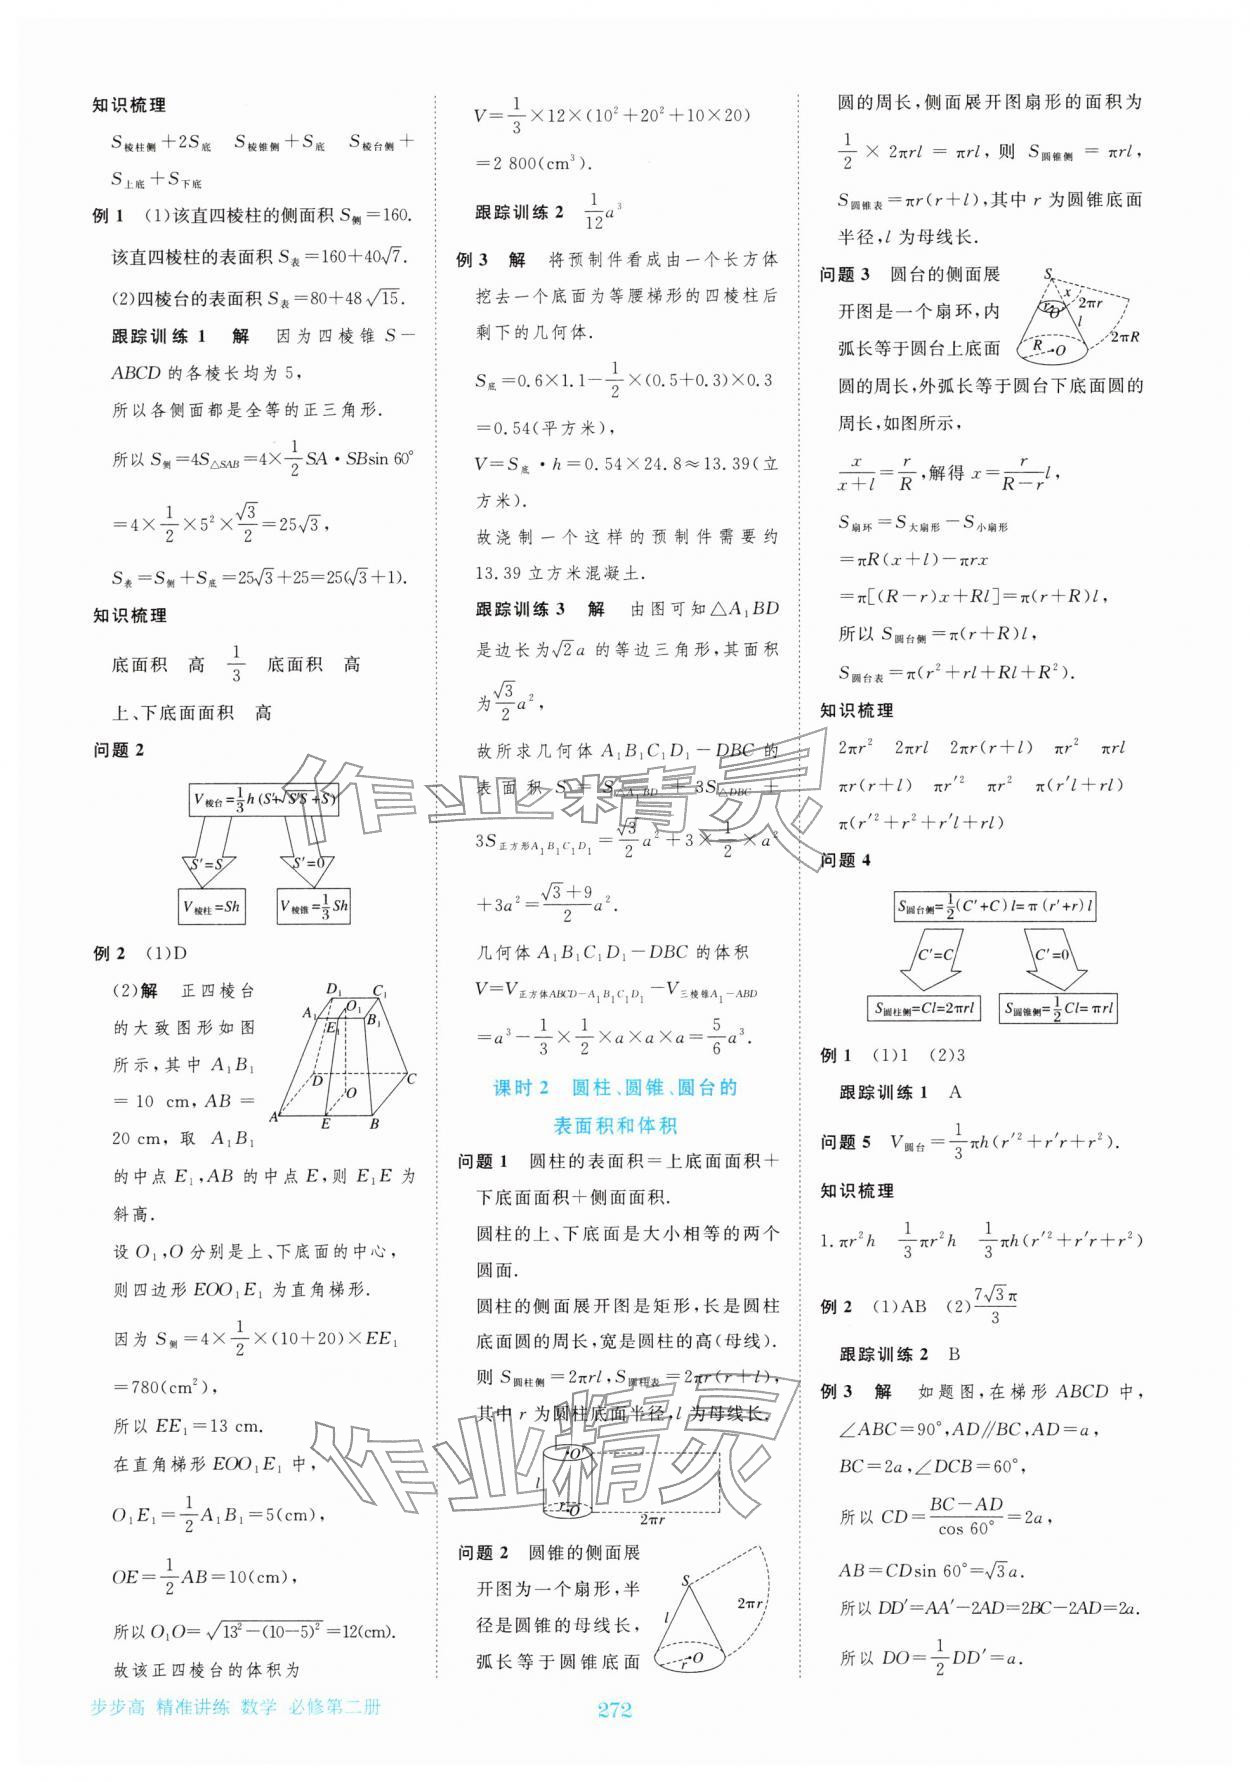 知识梳理
S棱柱侧+2S底　S棱锥侧+S底　S棱台侧+
S上底+S下底
例1　(1)该直四棱柱的侧面积S侧=160.
该直四棱柱的表面积S表=160+40√7.
(2)四棱台的表面积S表=80+48√15.
跟踪训练1　解　因为四棱锥S-
ABCD的各棱长均为5,
所以各侧面都是全等的正三角形.
所以S侧=4S△SAB=4×1/2 SA·SBsin 60°
=4×1/2×5²×√3/2=25√3,
S表=S侧+S底=25√3+25=25(√3+1).
知识梳理
底面积　高　1/3　底面积　高
上、下底面面积　高
问题2
V棱台=1/3 h(S'+√S'S+S)
S'=S　S'=0
V棱柱=Sh　V棱锥=1/3 Sh
例2　(1)D
(2)解　正四棱台
的大致图形如图
所示,其中A₁B₁
=10 cm,AB=
20 cm,取A₁B₁
D₁ C₁ O₁ A₁ E₁ B₁ D C O A E B
的中点E₁,AB的中点E,则E₁E为
斜高.
设O₁,O分别是上、下底面的中心,
则四边形EOO₁E₁为直角梯形.
因为S侧=4×1/2×(10+20)×EE₁
=780(cm²),
所以EE₁=13 cm.
在直角梯形EOO₁E₁中,
O₁E₁=1/2 A₁B₁=5(cm),
OE=1/2 AB=10(cm),
所以O₁O=√13²-(10-5)²=12(cm).
故该正四棱台的体积为
V=1/3×12×(10²+20²+10×20)
=2 800(cm³).
跟踪训练2　1/12 a³
例3　解　将预制件看成由一个长方体
挖去一个底面为等腰梯形的四棱柱后
剩下的几何体.
S底=0.6×1.1-1/2×(0.5+0.3)×0.3
=0.54(平方米),
V=S底·h=0.54×24.8≈13.39(立
方米).
故浇制一个这样的预制件需要约
13.39立方米混凝土.
跟踪训练3　解　由图可知△A₁BD
是边长为√2a的等边三角形,其面积
为√3/2 a²,
故所求几何体A₁B₁C₁D₁-DBC的
表面积S=S△A₁BD+3S△DBC+
3S正方形A₁B₁C₁D₁=√3/2 a²+3×1/2×a²
+3a²=(√3+9)/2 a².
几何体A₁B₁C₁D₁-DBC的体积
V=V正方体ABCD-A₁B₁C₁D₁-V三棱锥A₁-ABD
=a³-1/3×1/2×a×a×a=5/6 a³.
课时2　圆柱、圆锥、圆台的
表面积和体积
问题1　圆柱的表面积=上底面面积+
下底面面积+侧面面积.
圆柱的上、下底面是大小相等的两个
圆面.
圆柱的侧面展开图是矩形,长是圆柱
底面圆的周长,宽是圆柱的高(母线).
则S圆柱侧=2πrl,S圆柱表=2πr(r+l),
其中r为圆柱底面半径,l为母线长.
O' l r O 2πr
问题2　圆锥的侧面展
开图为一个扇形,半
径是圆锥的母线长,
弧长等于圆锥底面
S l r O 2πr
圆的周长,侧面展开图扇形的面积为
1/2×2πrl=πrl,则S圆锥侧=πrl,
S圆锥表=πr(r+l),其中r为圆锥底面
半径,l为母线长.
问题3　圆台的侧面展
开图是一个扇环,内
弧长等于圆台上底面
S x 2πr r O' l 2πR R O
圆的周长,外弧长等于圆台下底面圆的
周长,如图所示,
x/(x+l)=r/R,解得x=r/(R-r) l,
S扇环=S大扇形-S小扇形
=πR(x+l)-πrx
=π[(R-r)x+Rl]=π(r+R)l,
所以S圆台侧=π(r+R)l,
S圆台表=π(r²+rl+Rl+R²).
知识梳理
2πr²　2πrl　2πr(r+l)　πr²　πrl
πr(r+l)　πr'²　πr²　π(r'l+rl)
π(r'²+r²+r'l+rl)
问题4
S圆台侧=1/2(C'+C)l=π(r'+r)l
C'=C　C'=0
S圆柱侧=Cl=2πrl　S圆锥侧=1/2 Cl=πrl
例1　(1)1　(2)3
跟踪训练1　A
问题5　V圆台=1/3 πh(r'²+r'r+r²).
知识梳理
1.πr²h　1/3 πr²h　1/3 πh(r'²+r'r+r²)
例2　(1)AB　(2)7√3π/3
跟踪训练2　B
例3　解　如题图,在梯形ABCD中,
∠ABC=90°,AD∥BC,AD=a,
BC=2a,∠DCB=60°,
所以CD=(BC-AD)/cos 60°=2a,
AB=CDsin 60°=√3a.
所以DD'=AA'-2AD=2BC-2AD=2a.
所以DO=1/2 DD'=a.
作业精灵
作业精灵
步步高　精准讲练　数学　必修第二册
272